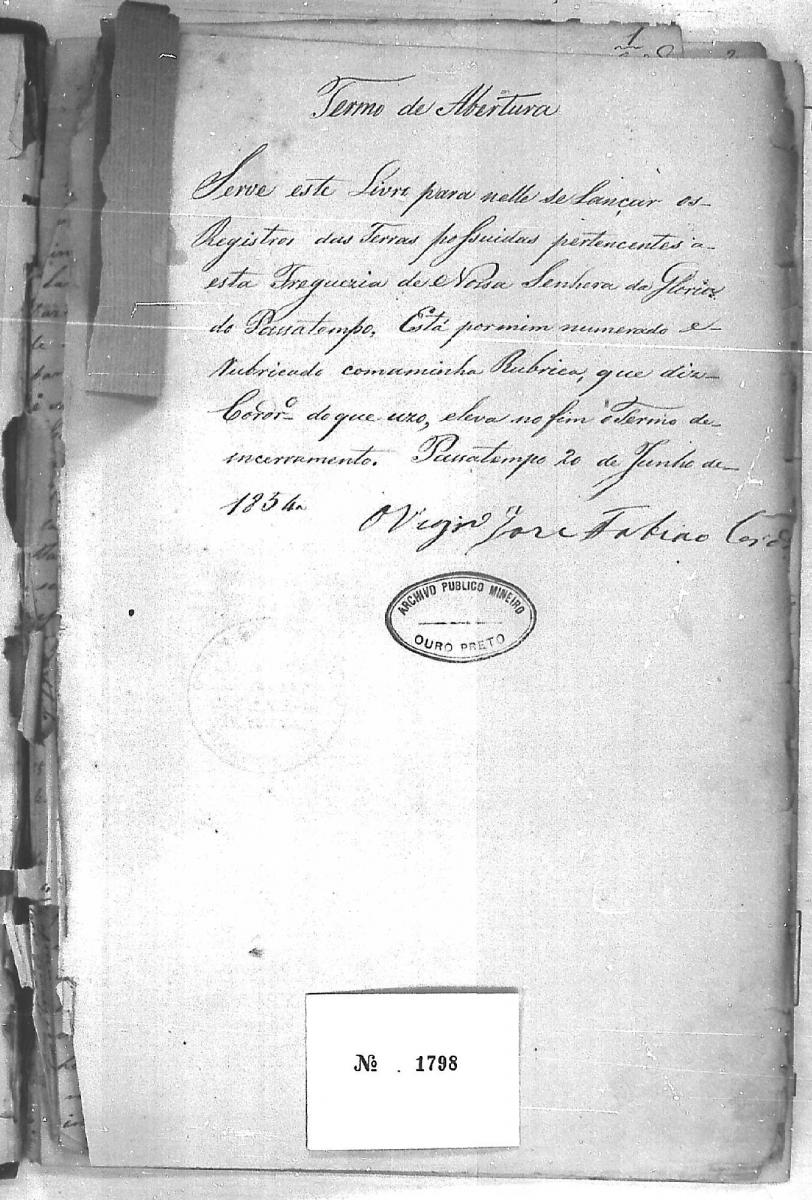 1
Termo de Abertura
Serve este Livro para nelle se Lançar os
Registros das Terras possuidas pertencentes a
esta Freguezia de Nossa Senhora da Gloria
do Passatempo, Está por mim numerado e
rubricado com a minha Rubrica, que diz
do que uzo, e leva no fim o Termo de
incerramento. Passatempo 20 de Junho de
1854
O Vigr.º José Fabiao
ARCHIVO PUBLICO MINEIRO
OURO PRETO
Nº . 1798